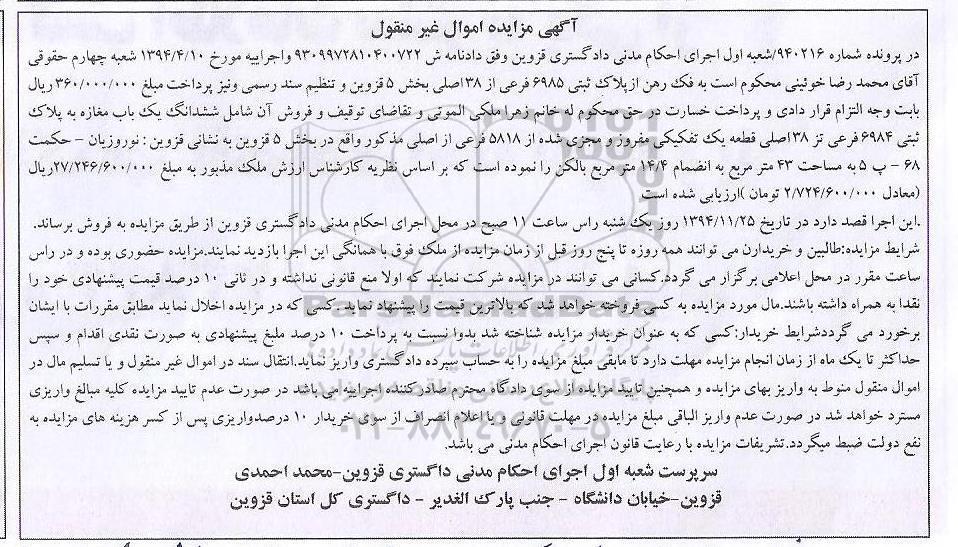 آگهی مزایده اموال غیر منقول
در پرونده شماره ۹۴۰۲۱۶/شعبه اول اجرای احکام مدنی دادگستری قزوین وفق دادنامه ش ۹۳۰۹۹۷۲۸۱۰۴۰۰۷۲۲ واجراییه مورخ ۱۳۹۴/۴/۱۰ شعبه چهارم حقوقی
آقای محمد رضا خوئینی محکوم است به فک رهن ازپلاک ثبتی ۶۹۸۵ فرعی از ۳۸اصلی بخش ۵ قزوین و تنظیم سند رسمی ونیز پرداخت مبلغ ۳۶۰/۰۰۰/۰۰۰ ریال
بابت وجه التزام قرار دادی و پرداخت خسارت در حق محکوم له خانم زهرا ملکی الموتی و تقاضای توقیف و فروش آن شامل ششدانگ یک باب مغازه به پلاک
ثبتی ۶۹۸۴ فرعی تز ۳۸اصلی قطعه یک تفکیکی مفروز و مجزی شده از ۵۸۱۸ فرعی از اصلی مذکور واقع در بخش ۵ قزوین به نشانی قزوین : نوروزیان – حکمت
۶۸ – پ ۵ به مساحت ۴۳ متر مربع به انضمام ۱۴/۴ متر مربع بالکن را نموده است که بر اساس نظریه کارشناس ارزش ملک مذبور به مبلغ ۲۷/۲۴۶/۶۰۰/۰۰۰ریال
(معادل ۲/۷۲۴/۶۰۰/۰۰۰ تومان )ارزیابی شده است
.این اجرا قصد دارد در تاریخ ۱۳۹۴/۱۱/۲۵ روز یک شنبه راس ساعت ۱۱ صبح در محل اجرای احکام مدنی دادگستری قزوین از طریق مزایده به فروش برساند.
شرایط مزایده:طالبین و خریدارن می توانند همه روزه تا پنج روز قبل از زمان مزایده از ملک فوق با همانگی این اجرا بازدید نمایند.مزایده حضوری بوده و در راس
ساعت مقرر در محل اعلامی برگزار می گردد.کسانی می توانند در مزایده شرکت نمایند که اولا منع قانونی نداشته و در ثانی ۱۰ درصد قیمت پیشنهادی خود را
نقدا به همراه داشته باشند.مال مورد مزایده به کسی فروخته خواهد شد که بالاترین قیمت را پیشنهاد نماید.کسی که در مزایده اخلال نماید مطابق مقررات با ایشان
برخورد می گرددشرایط خریدار:کسی که به عنوان خریدار مزایده شناخته شد بدوا نسبت به پرداخت ۱۰ درصد ملبغ پیشنهادی به صورت نقدی اقدام و سپس
حداکثر تا یک ماه از زمان انجام مزایده مهلت دارد تا مابقی مبلغ مزایده را به حساب سپرده دادگستری واریز نماید.انتقال سند در اموال غیر منقول و یا تسلیم مال در
اموال منقول منوط به واریز بهای مزایده و همچنین تایید مزایده از سوی دادگاه محترم صادر کننده اجراییه می باشد در صورت عدم تایید مزایده کلیه مبالغ واریزی
مسترد خواهد شد در صورت عدم واریز الباقی مبلغ مزایده در مهلت قانونی و یا اعلام انصراف از سوی خریدار ۱۰ درصدواریزی پس از کسر هزینه های مزایده به
نفع دولت ضبط میگردد.تشریفات مزایده با رعایت قانون اجرای احکام مدنی می باشد.
سرپرست شعبه اول اجرای احکام مدنی داگستری قزوین-محمد احمدی
قزوین-خیابان دانشگاه – جنب پارک الغدیر – داگستری کل استان قزوین
ParsNamadData
۰۲۱-۸۸۳۴۹۶۷۰-۵